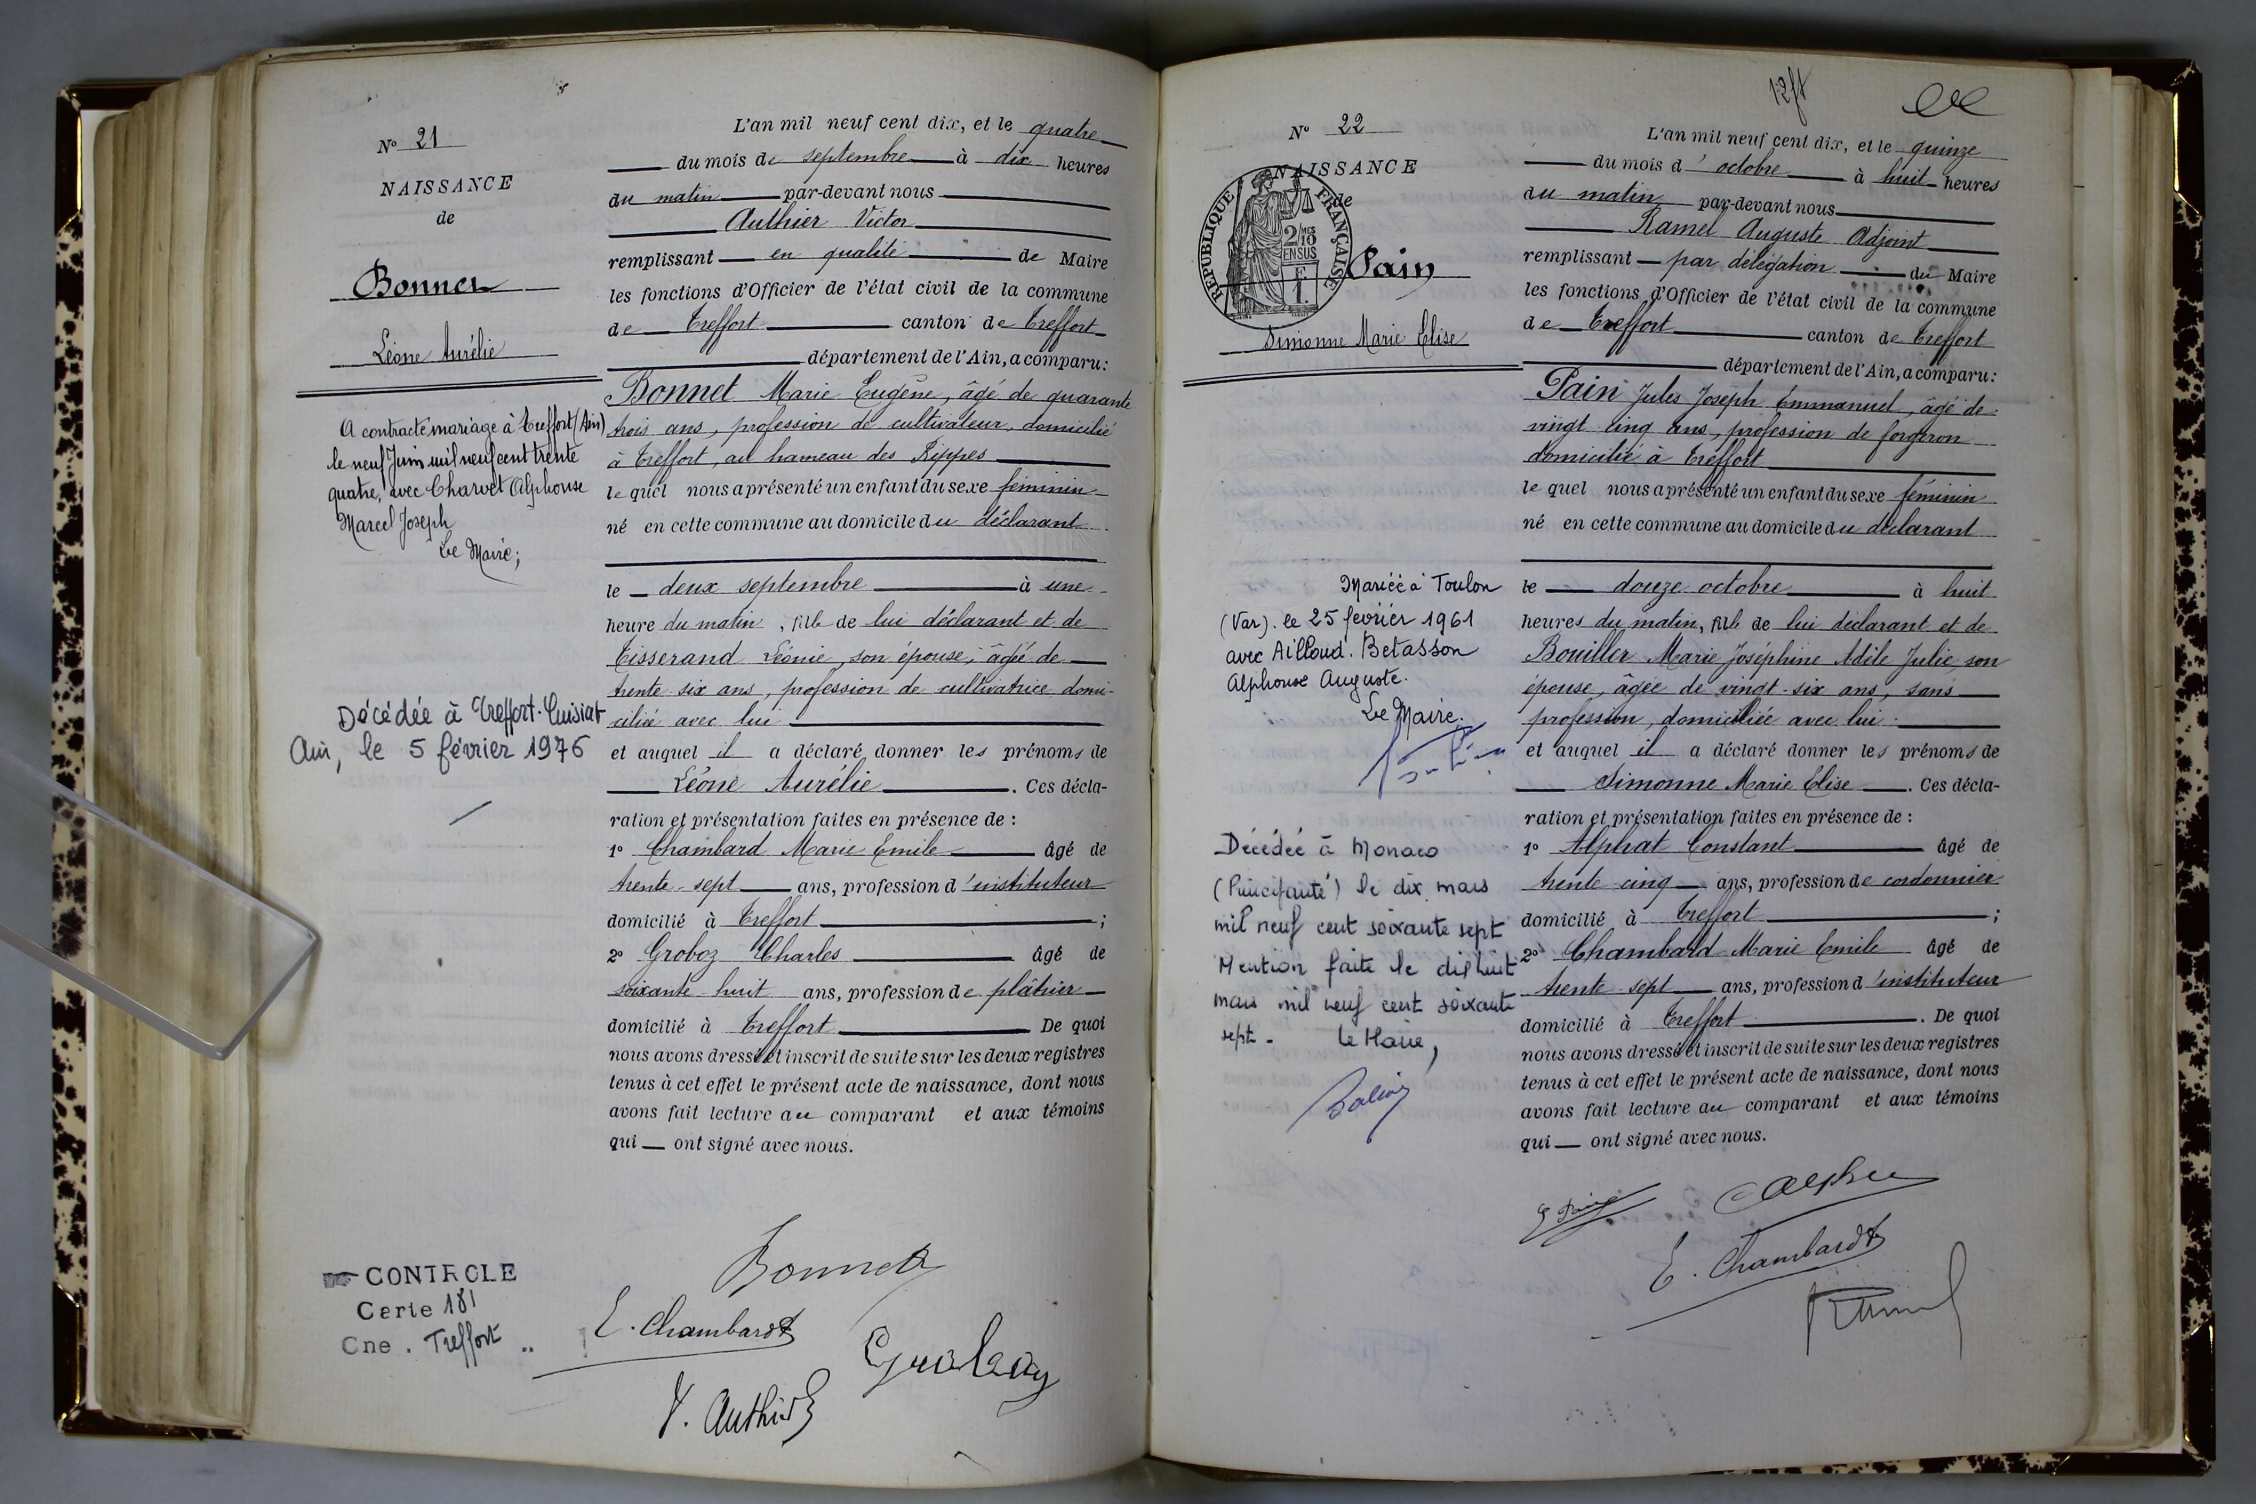 N° 21
NAISSANCE
de
Bonnet
Léone Aurélie
A contracté mariage à Treffort (Ain)
le neuf Juin mil neuf cent trente
quatre, avec Charvet Alphonse
Marcel Joseph
Le Maire;
Décédée à Treffort-Cuisiat
Ain, le 5 février 1976
CONTROLE
Carte 181
Cne. Treffort
L'an mil neuf cent dix, et le quatre
du mois de septembre à dix heures
du matin par-devant nous
Authier Victor
remplissant en qualité de Maire
les fonctions d'Officier de l'état civil de la commune
de Treffort canton de Treffort
département de l'Ain, a comparu:
Bonnet Marie Eugène, âgé de quarante
trois ans, profession de cultivateur, domicilié
à Treffort, au hameau des Rippes
le quel nous a présenté un enfant du sexe féminin
né en cette commune au domicile du déclarant
le deux septembre à une
heure du matin, fille de lui déclarant et de
Tisserand Léonie, son épouse, âgée de
trente six ans, profession de cultivatrice domi-
ciliée avec lui
et auquel il a déclaré donner les prénoms de
Léone Aurélie. Ces décla-
ration et présentation faites en présence de :
1° Chambard Marie Emile âgé de
trente-sept ans, profession d'instituteur
domicilié à Treffort ;
2° Groboz Charles âgé de
soixante huit ans, profession de plâtrier
domicilié à Treffort De quoi
nous avons dressé et inscrit de suite sur les deux registres
tenus à cet effet le présent acte de naissance, dont nous
avons fait lecture au comparant et aux témoins
qui ont signé avec nous.
Bonnet
E. Chambard
Groboz
V. Authier
12 ft
N° 22
NAISSANCE
de
RÉPUBLIQUE FRANÇAISE
2/10 MES
EN SUS
Pain
Simonne Marie Elise
Mariée à Toulon
(Var). le 25 février 1961
avec Ailloud. Betasson
Alphonse Auguste.
Le Maire.
Décédée à Monaco
(Principauté) le dix mars
mil neuf cent soixante sept
Mention faite le dix huit
mars mil neuf cent soixante
sept - Le Maire,
L'an mil neuf cent dix, et le quinze
du mois d'octobre à huit heures
du matin par-devant nous
Ramel Auguste Adjoint
remplissant par délégation du Maire
les fonctions d'Officier de l'état civil de la commune
de Treffort canton de Treffort
département de l'Ain, a comparu:
Pain Jules Joseph Emmanuel, âgé de
vingt cinq ans, profession de forgeron
domicilié à Treffort
le quel nous a présenté un enfant du sexe féminin
né en cette commune au domicile du déclarant
le douze octobre à huit
heures du matin, fille de lui déclarant et de
Bouiller Marie Joséphine Adèle Julie, son
épouse, âgée de vingt-six ans, sans
profession, domiciliée avec lui
et auquel il a déclaré donner les prénoms de
Simonne Marie Elise. Ces décla-
ration et présentation faites en présence de :
1° Alphat Constant âgé de
trente cinq ans, profession de cordonnier
domicilié à Treffort ;
2° Chambard Marie Emile âgé de
trente-sept ans, profession d'instituteur
domicilié à Treffort. De quoi
nous avons dressé et inscrit de suite sur les deux registres
tenus à cet effet le présent acte de naissance, dont nous
avons fait lecture au comparant et aux témoins
qui ont signé avec nous.
E. Chambard
Ramel